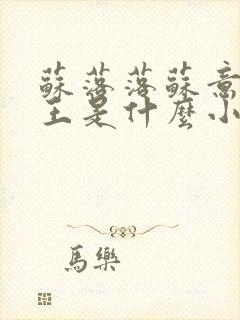 蘇落落蘇意
主是什麼小
馬樂